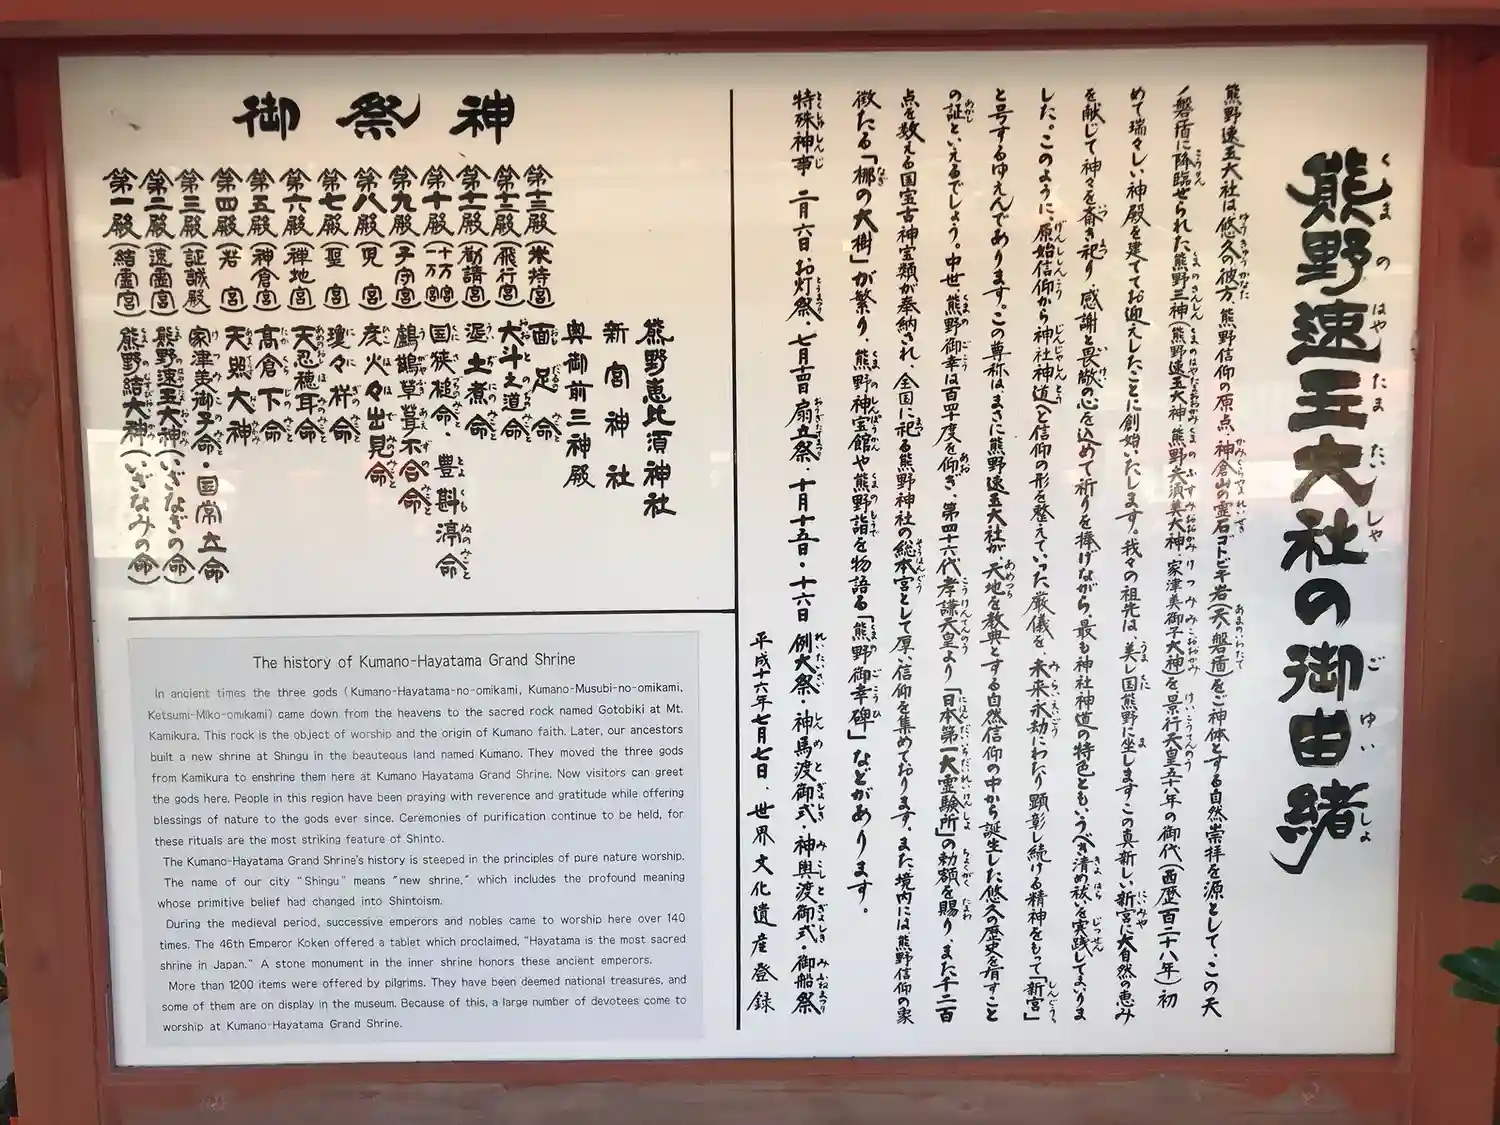 熊野速玉大社の御由緒
熊野速玉大社は悠久の彼方、熊野信仰の原点、神倉山の霊石ゴトビキ岩(天磐盾)をご神体とする自然崇拝を源として、この天
ノ磐盾に降臨せられた熊野三神(熊野速玉大神・熊野夫須美大神・家津美御子大神)を景行天皇五十八年の御代(西歴一百二十八年)初
めて瑞々しい神殿を建ててお迎えしたことに創始いたします。我々の祖先は、美し国熊野に坐しますこの真新しい新宮に大自然の恵み
を献じて神々を斎き祀り、感謝と畏敬の心を込めて祈りを捧げながら、最も神社神道の特色ともいうべき清め祓いを実践してまいりま
した。このように、原始信仰から神社神道へと信仰の形を整えていった厳儀を、未来永劫にわたり顕彰し続ける精神をもって「新宮」
と号するゆえんであります。この尊称は、まさに熊野速玉大社が、天地を教典とする自然信仰の中から誕生した悠久の歴史を有すこと
の証といえるでしょう。中世、熊野御幸は百四十度を仰ぎ、第四十六代孝謙天皇より「日本第一大霊験所」の勅額を賜り、また千二百
点を数える国宝古神宝類が奉納され、全国に祀る熊野神社の総本宮として厚い信仰を集めております。また境内には、熊野信仰の象
徴たる「梛の大樹」が繁り、熊野神宝館や熊野詣を物語る「熊野御幸碑」などがあります。
特殊神事 二月六日 お灯祭、七月十四日 扇立祭、十月十五日・十六日 例大祭・神馬渡御式・神輿渡御式・御船祭
平成十六年七月七日、世界文化遺産登録
御祭神
熊野恵比須神社
新宮神社
奥御前三神殿
第十三殿(米持宮)面足命
第十二殿(飛行宮)大斗之道命
第十一殿(勧請宮)泥土煮命
第十殿(十万宮 一万宮)国狭槌命・豊斟渟命
第九殿(子守宮)鸕鶿草葺不合命
第八殿(児宮)彦火々出見命
第七殿(聖宮)瓊々杵命
第六殿(禅地宮)天忍穂耳命
第五殿(神倉宮)高倉下命
第四殿(若宮)天照大神
第三殿(証誠殿)家津美御子命・国常立命
第二殿(速霊宮)熊野速玉大神(いざなぎの命)
第一殿(結霊宮)熊野結大神(いざなみの命)
The history of Kumano-Hayatama Grand Shrine
In ancient times the three gods (Kumano-Hayatama-no-omikami, Kumano-Musubi-no-omikami,
Ketsumi-Miko-omikami) came down from the heavens to the sacred rock named Gotobiki at Mt.
Kamikura. This rock is the object of worship and the origin of Kumano faith. Later, our ancestors
built a new shrine at Shingu in the beauteous land named Kumano. They moved the three gods
from Kamikura to enshrine them here at Kumano Hayatama Grand Shrine. Now visitors can greet
the gods here. People in this region have been praying with reverence and gratitude while offering
blessings of nature to the gods ever since. Ceremonies of purification continue to be held, for
these rituals are the most striking feature of Shinto.
The Kumano-Hayatama Grand Shrine's history is steeped in the principles of pure nature worship.
The name of our city "Shingu" means "new shrine," which includes the profound meaning
whose primitive belief had changed into Shintoism.
During the medieval period, successive emperors and nobles came to worship here over 140
times. The 46th Emperor Koken offered a tablet which proclaimed, "Hayatama is the most sacred
shrine in Japan." A stone monument in the inner shrine honors these ancient emperors.
More than 1200 items were offered by pilgrims. They have been deemed national treasures, and
some of them are on display in the museum. Because of this, a large number of devotees come to
worship at Kumano-Hayatama Grand Shrine.